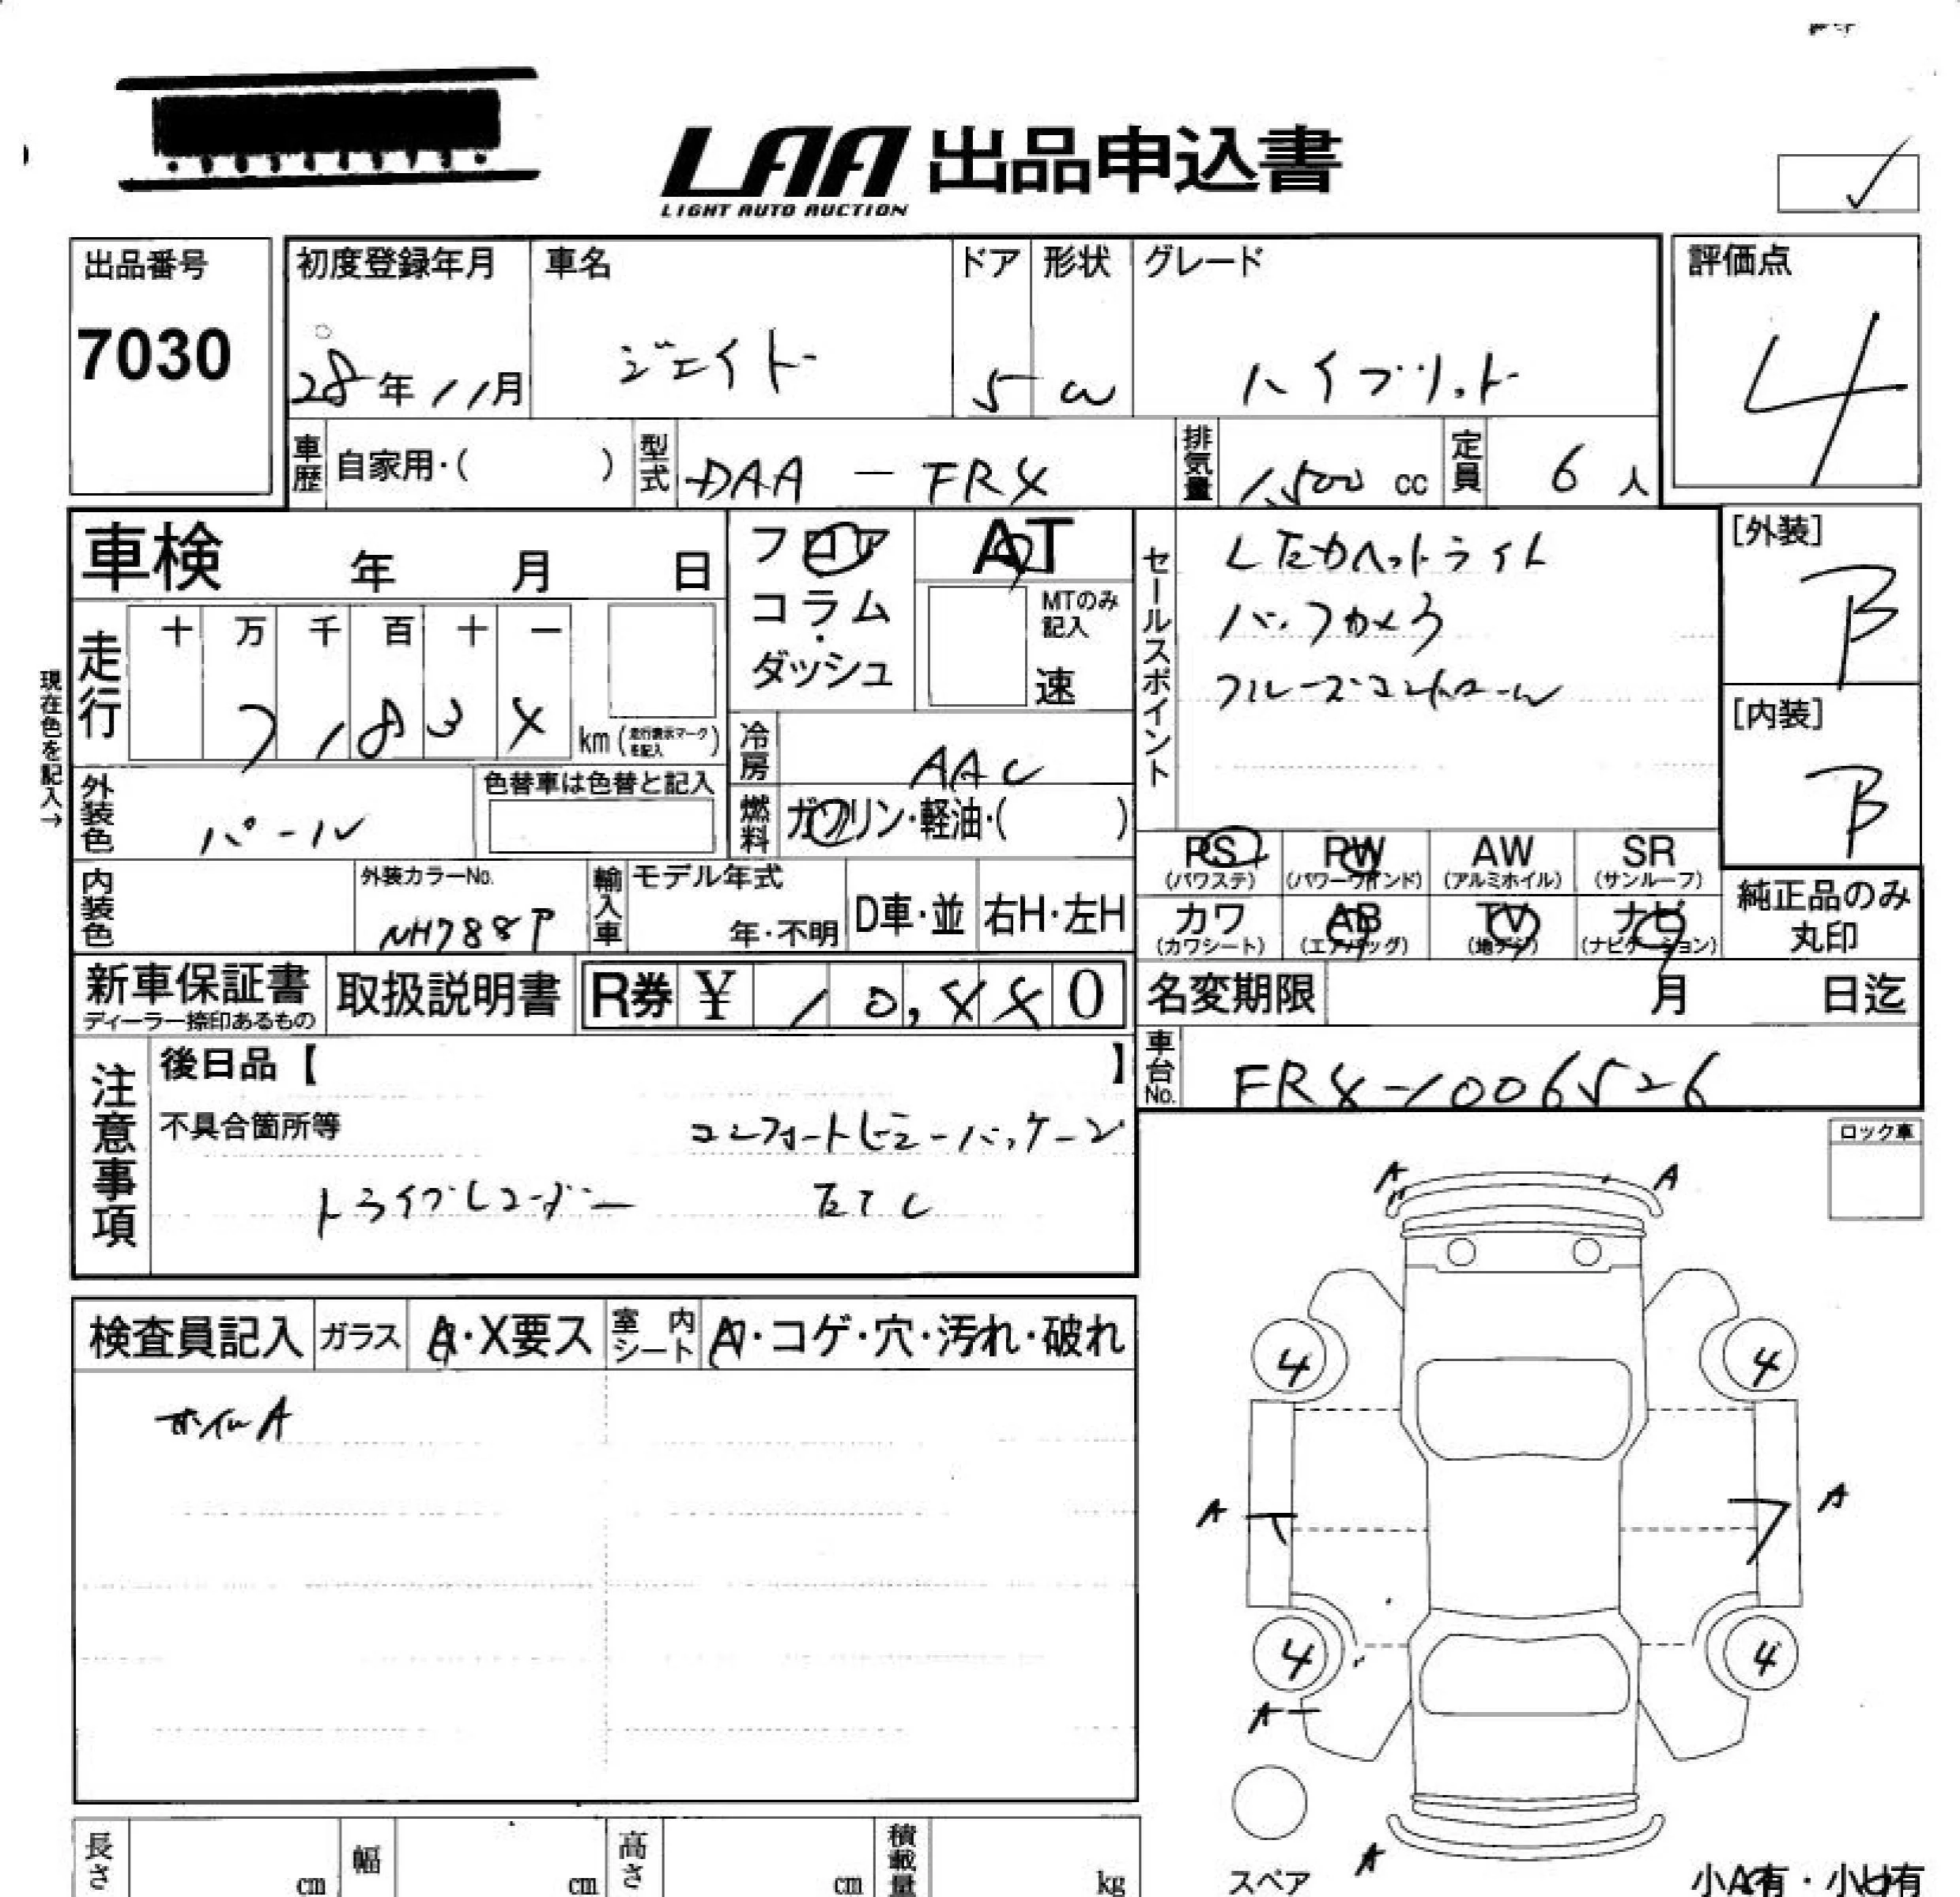 LAA 出品申込書
LIGHT AUTO AUCTION
出品番号
7030
初度登録年月
28年11月
車名
ジェイド
ドア
5
形状
W
グレード
ハイブリッド
評価点
4
車歴 自家用・( )
型式 DAA-FR4
排気量 1,500 cc
定員 6 人
車検 年 月 日
フロア
コラム
・
ダッシュ
AT
MTのみ
記入
速
セールスポイント
LEDヘッドライト
バックカメラ
クルーズコントロール
[外装]
B
[内装]
B
現在色を記入→
走行
十 万 千 百 十 一
7 1 8 3 4
km (走行表示マークを記入)
冷房 AAC
外装色 パール
色替車は色替と記入
燃料 ガソリン・軽油・( )
PS (パワステ)
PW (パワーウインド)
AW (アルミホイル)
SR (サンルーフ)
内装色
外装カラーNo.
NH788P
輸入車
モデル年式
年・不明
D車・並
右H・左H
カワ (カワシート)
AB (エアバッグ)
TV (地デジ)
ナビ (ナビゲーション)
純正品のみ
丸印
新車保証書
ディーラー捺印あるもの
取扱説明書
R券 ¥ 10,440
名変期限 月 日迄
車台No. FR4-1006526
注意事項
後日品【 】
不具合箇所等
コンフォートビューパッケージ
ドライブレコーダー ETC
ロック車
検査員記入
ガラス A・X要ス
室内シート A・コゲ・穴・汚れ・破れ
ホイルA
A A
4 4
A A
4 4
A
A
スペア
小A有・小U有
長さ cm
幅 cm
高さ cm
積載量 kg